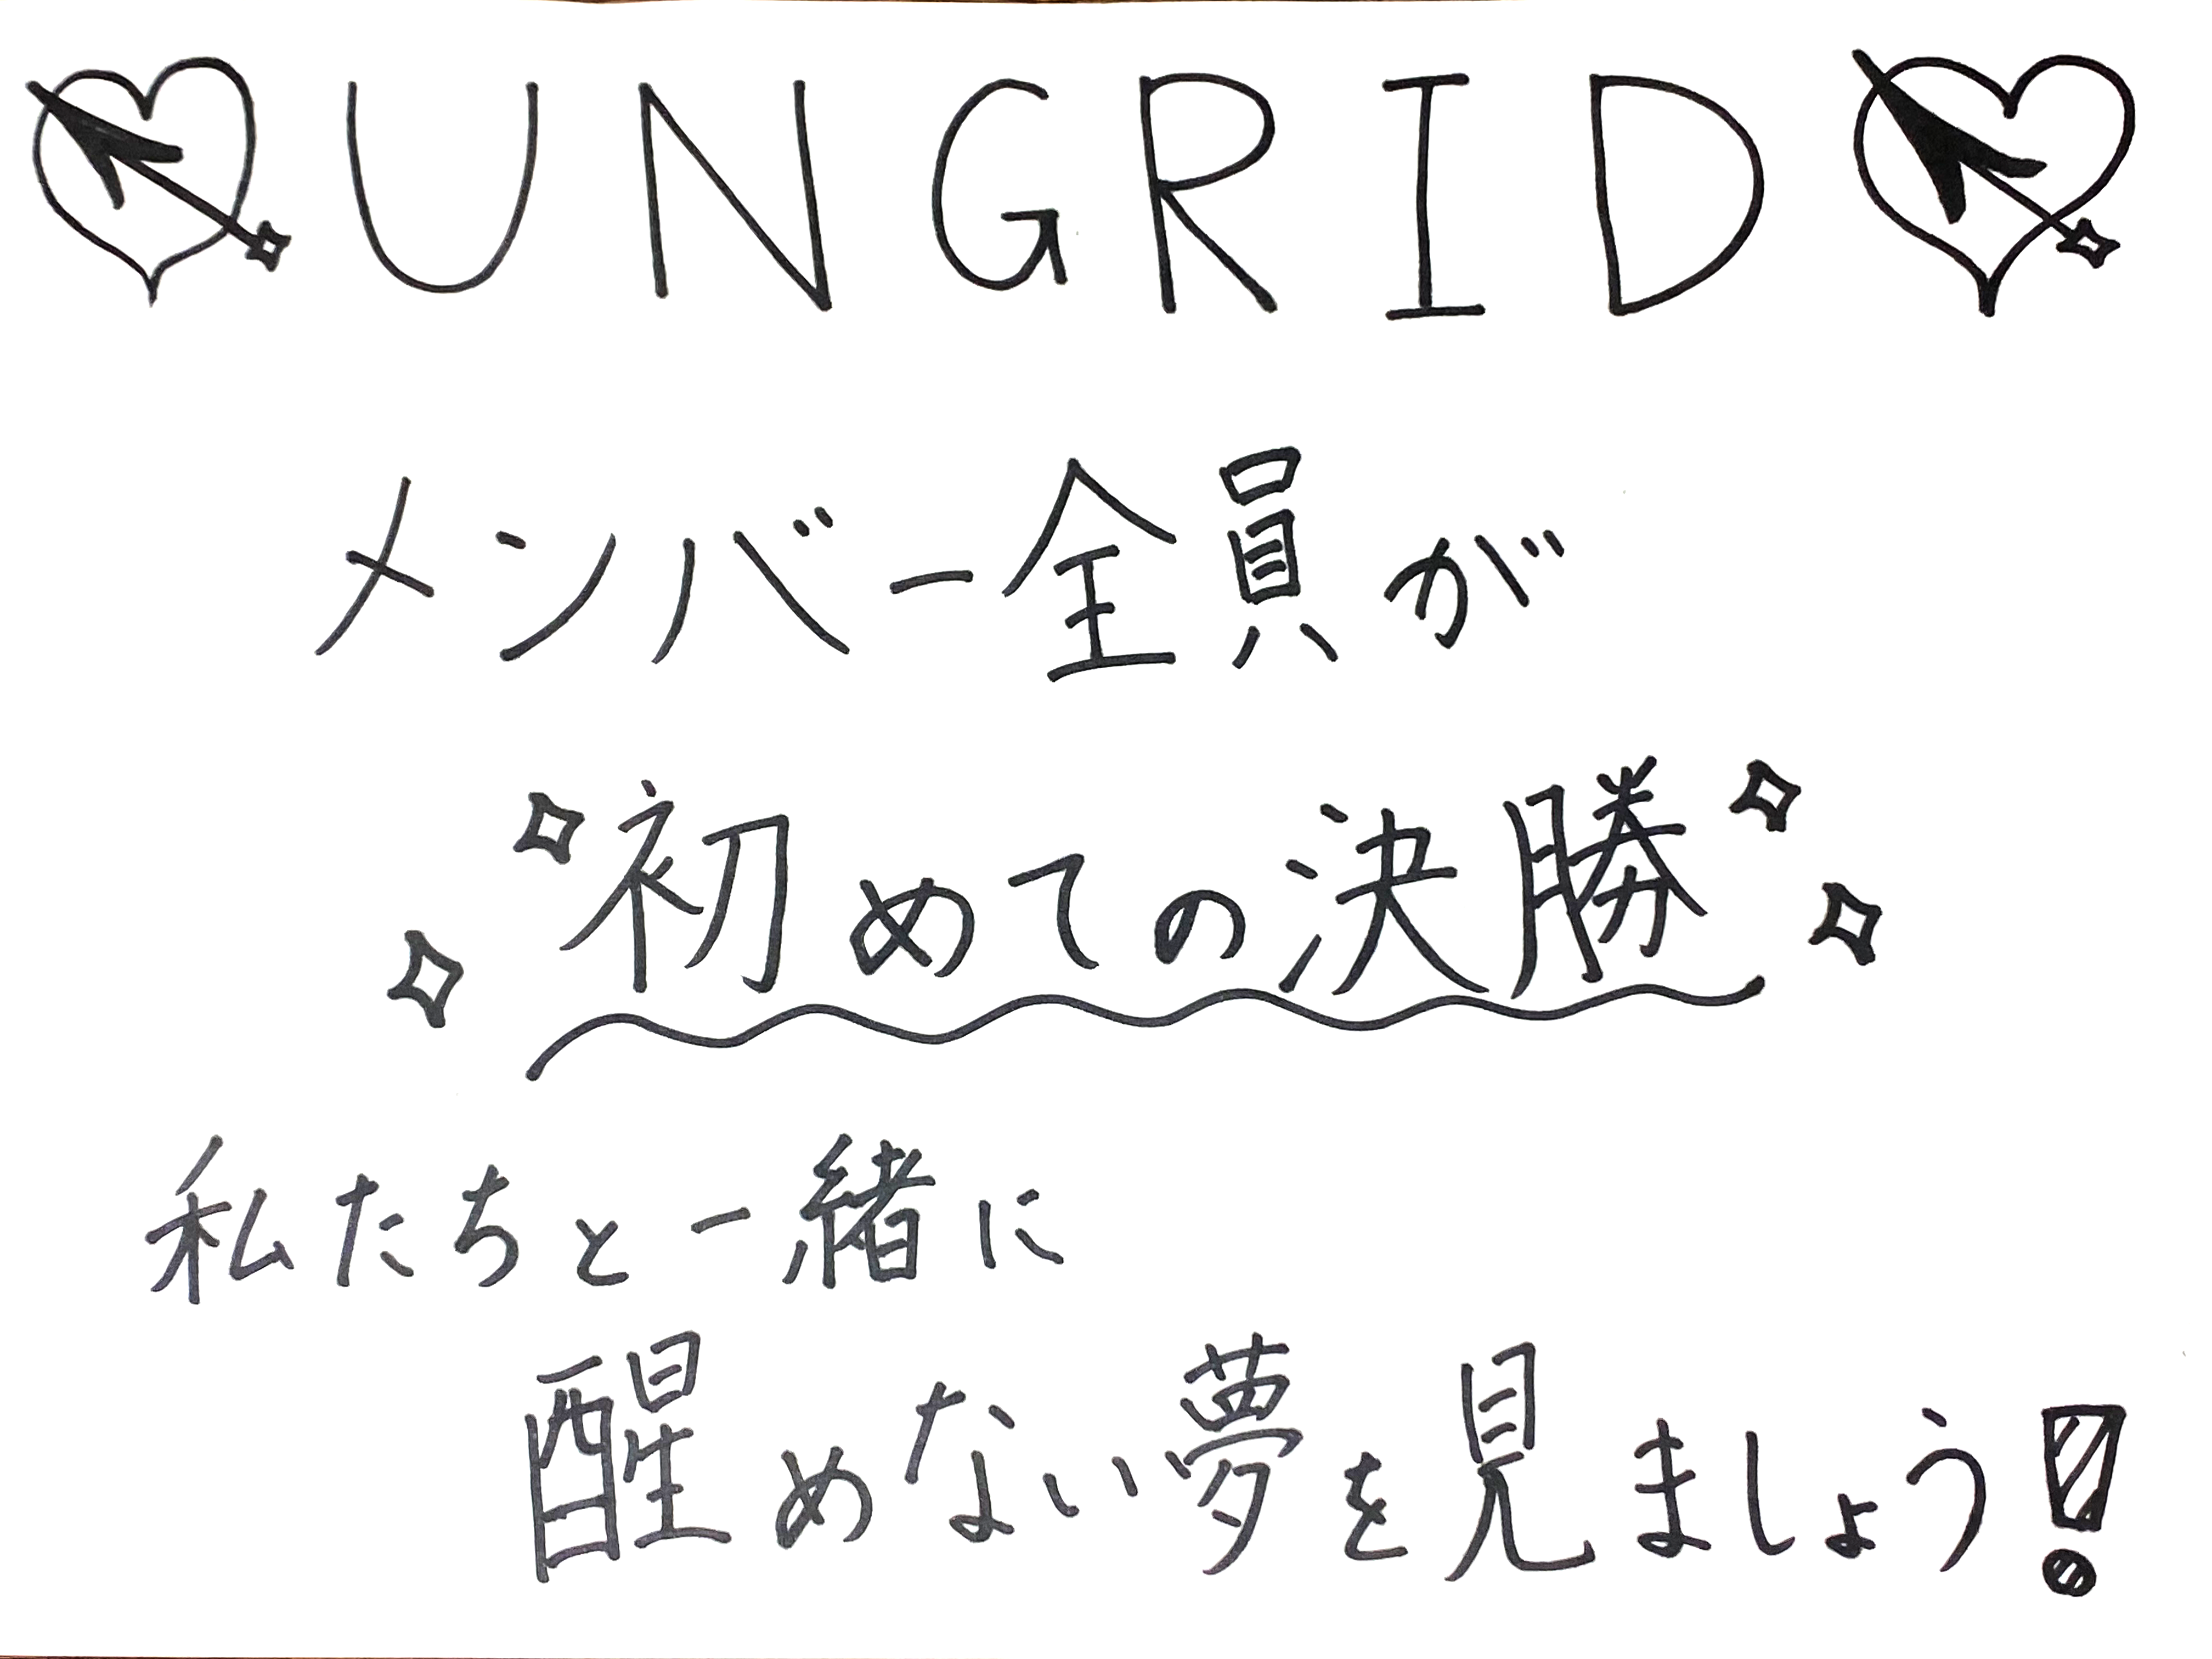 UNGRID
メンバー全員が
初めての決勝
私たちと一緒に
醒めない夢を見ましょう!